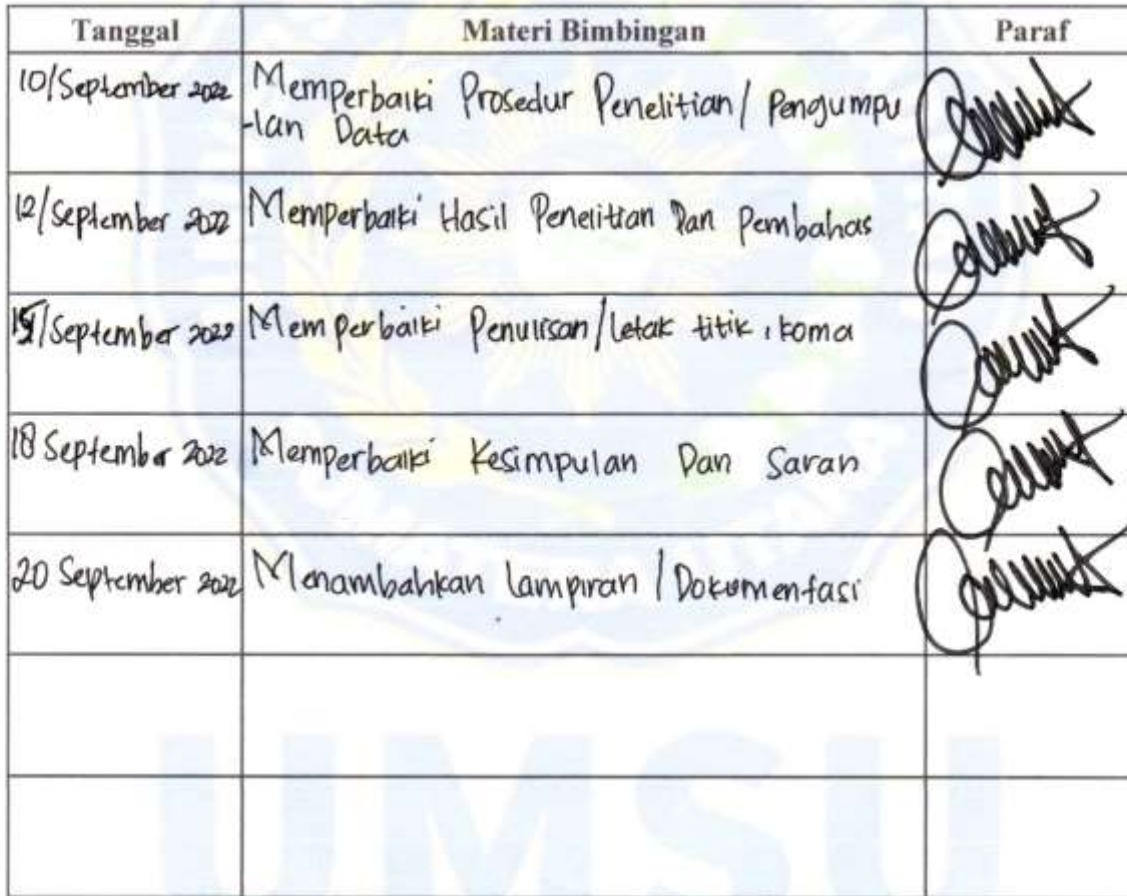 Tanggal Materi Bimbingan Paraf
10/September 2022 Memperbaiki Prosedur Penelitian/ Pengumpu
-lan Data
12/September 2022 Memperbaiki Hasil Penelitian Dan Pembahas
/September 2022 Memperbaiki Penulisan/letak titik, koma
18 September 2022 Memperbaiki Kesimpulan Dan Saran
20 September 2022 Menambahkan lampiran / Dokumentasi
UMSU